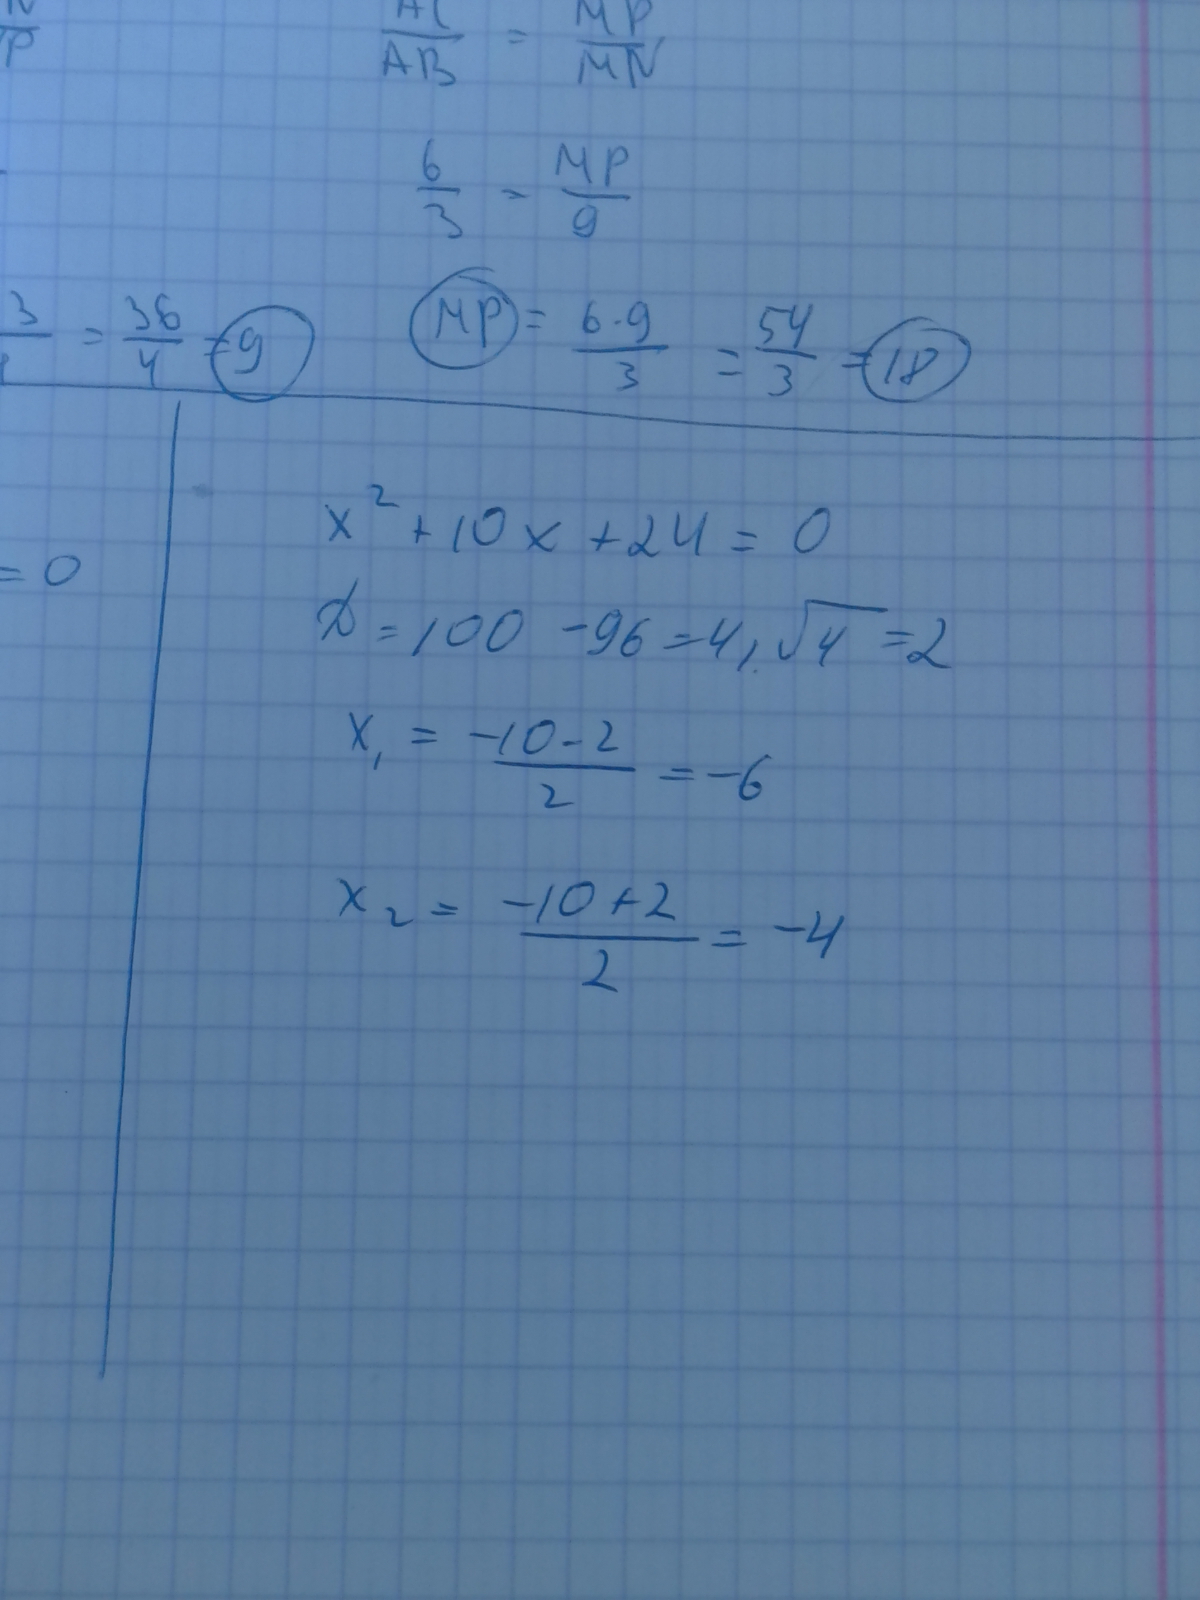 AC/AB = MP/MN
6/3 = MP/9
= 36/4 = 9
MP = 6·9/3 = 54/3 = 18
= 0
x² + 10x + 24 = 0
D = 100 - 96 = 4, √4 = 2
x₁ = -10-2/2 = -6
x₂ = -10+2/2 = -4